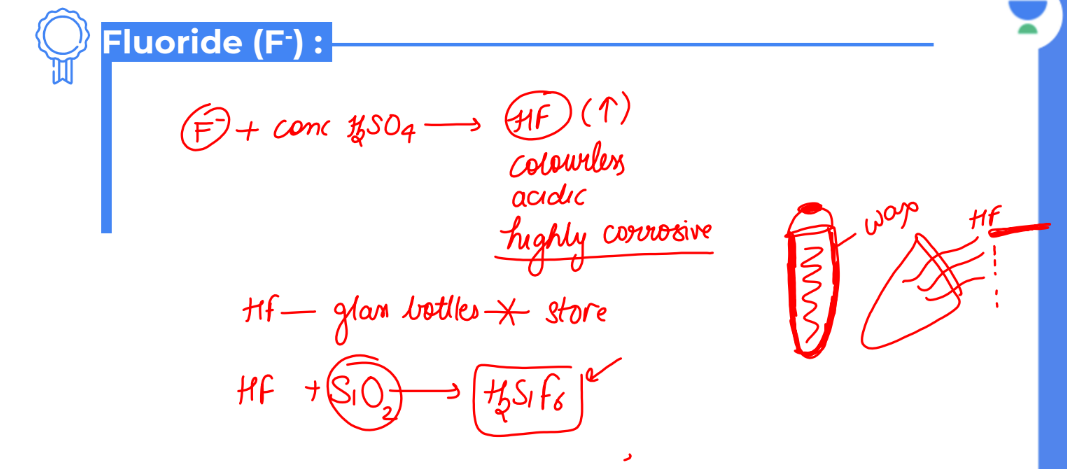 Fluoride (F-) :
F- + conc H2SO4 → HF (↑)
colourless
acidic
highly corrosive
wax
HF
Hf — glass bottles × store
HF + SiO2 → H2SiF6